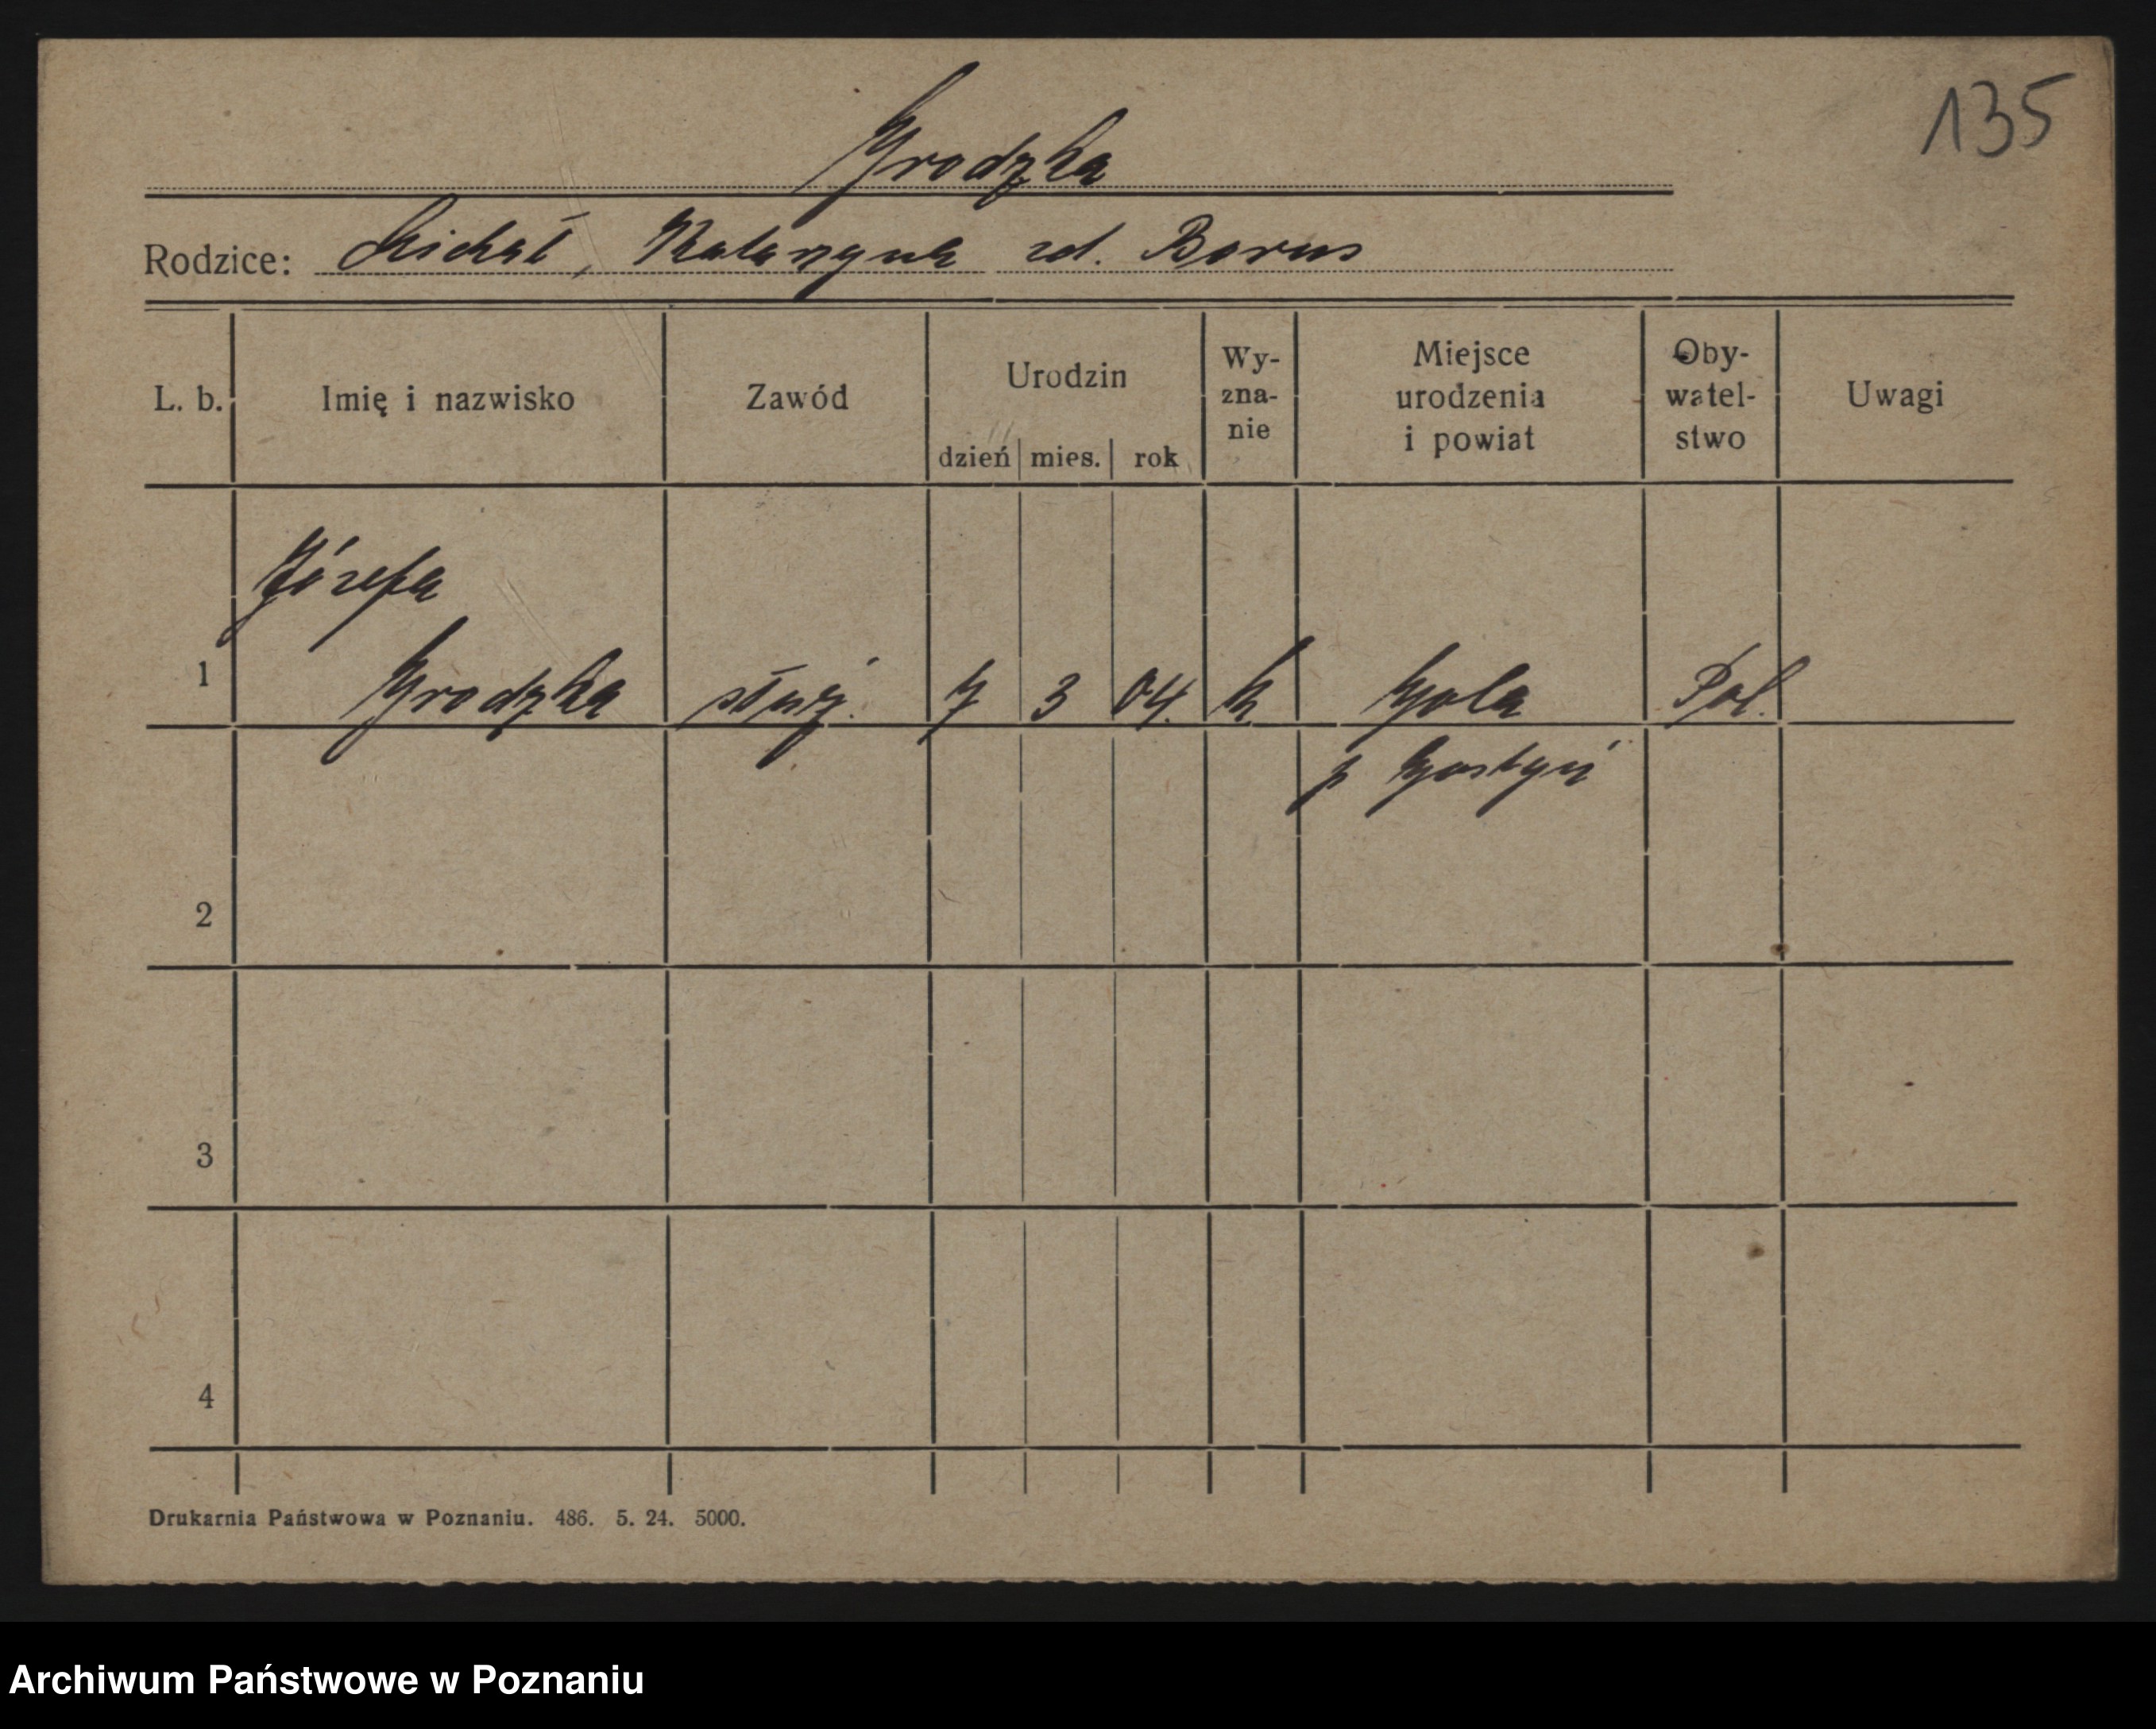 135
Grodzka
Rodzice: Michał, Katarzyna zd. Borus
L. b. Imię i nazwisko Zawód Urodzin dzień mies. rok Wy-zna-nie Miejsce urodzenia i powiat Oby-watel-stwo Uwagi
Józefa
1 Grodzka służ. 7 3 04. k Gola Pol.
p Gostyń
2
3
4
Drukarnia Państwowa w Poznaniu. 486. 5. 24. 5000.
Archiwum Państwowe w Poznaniu